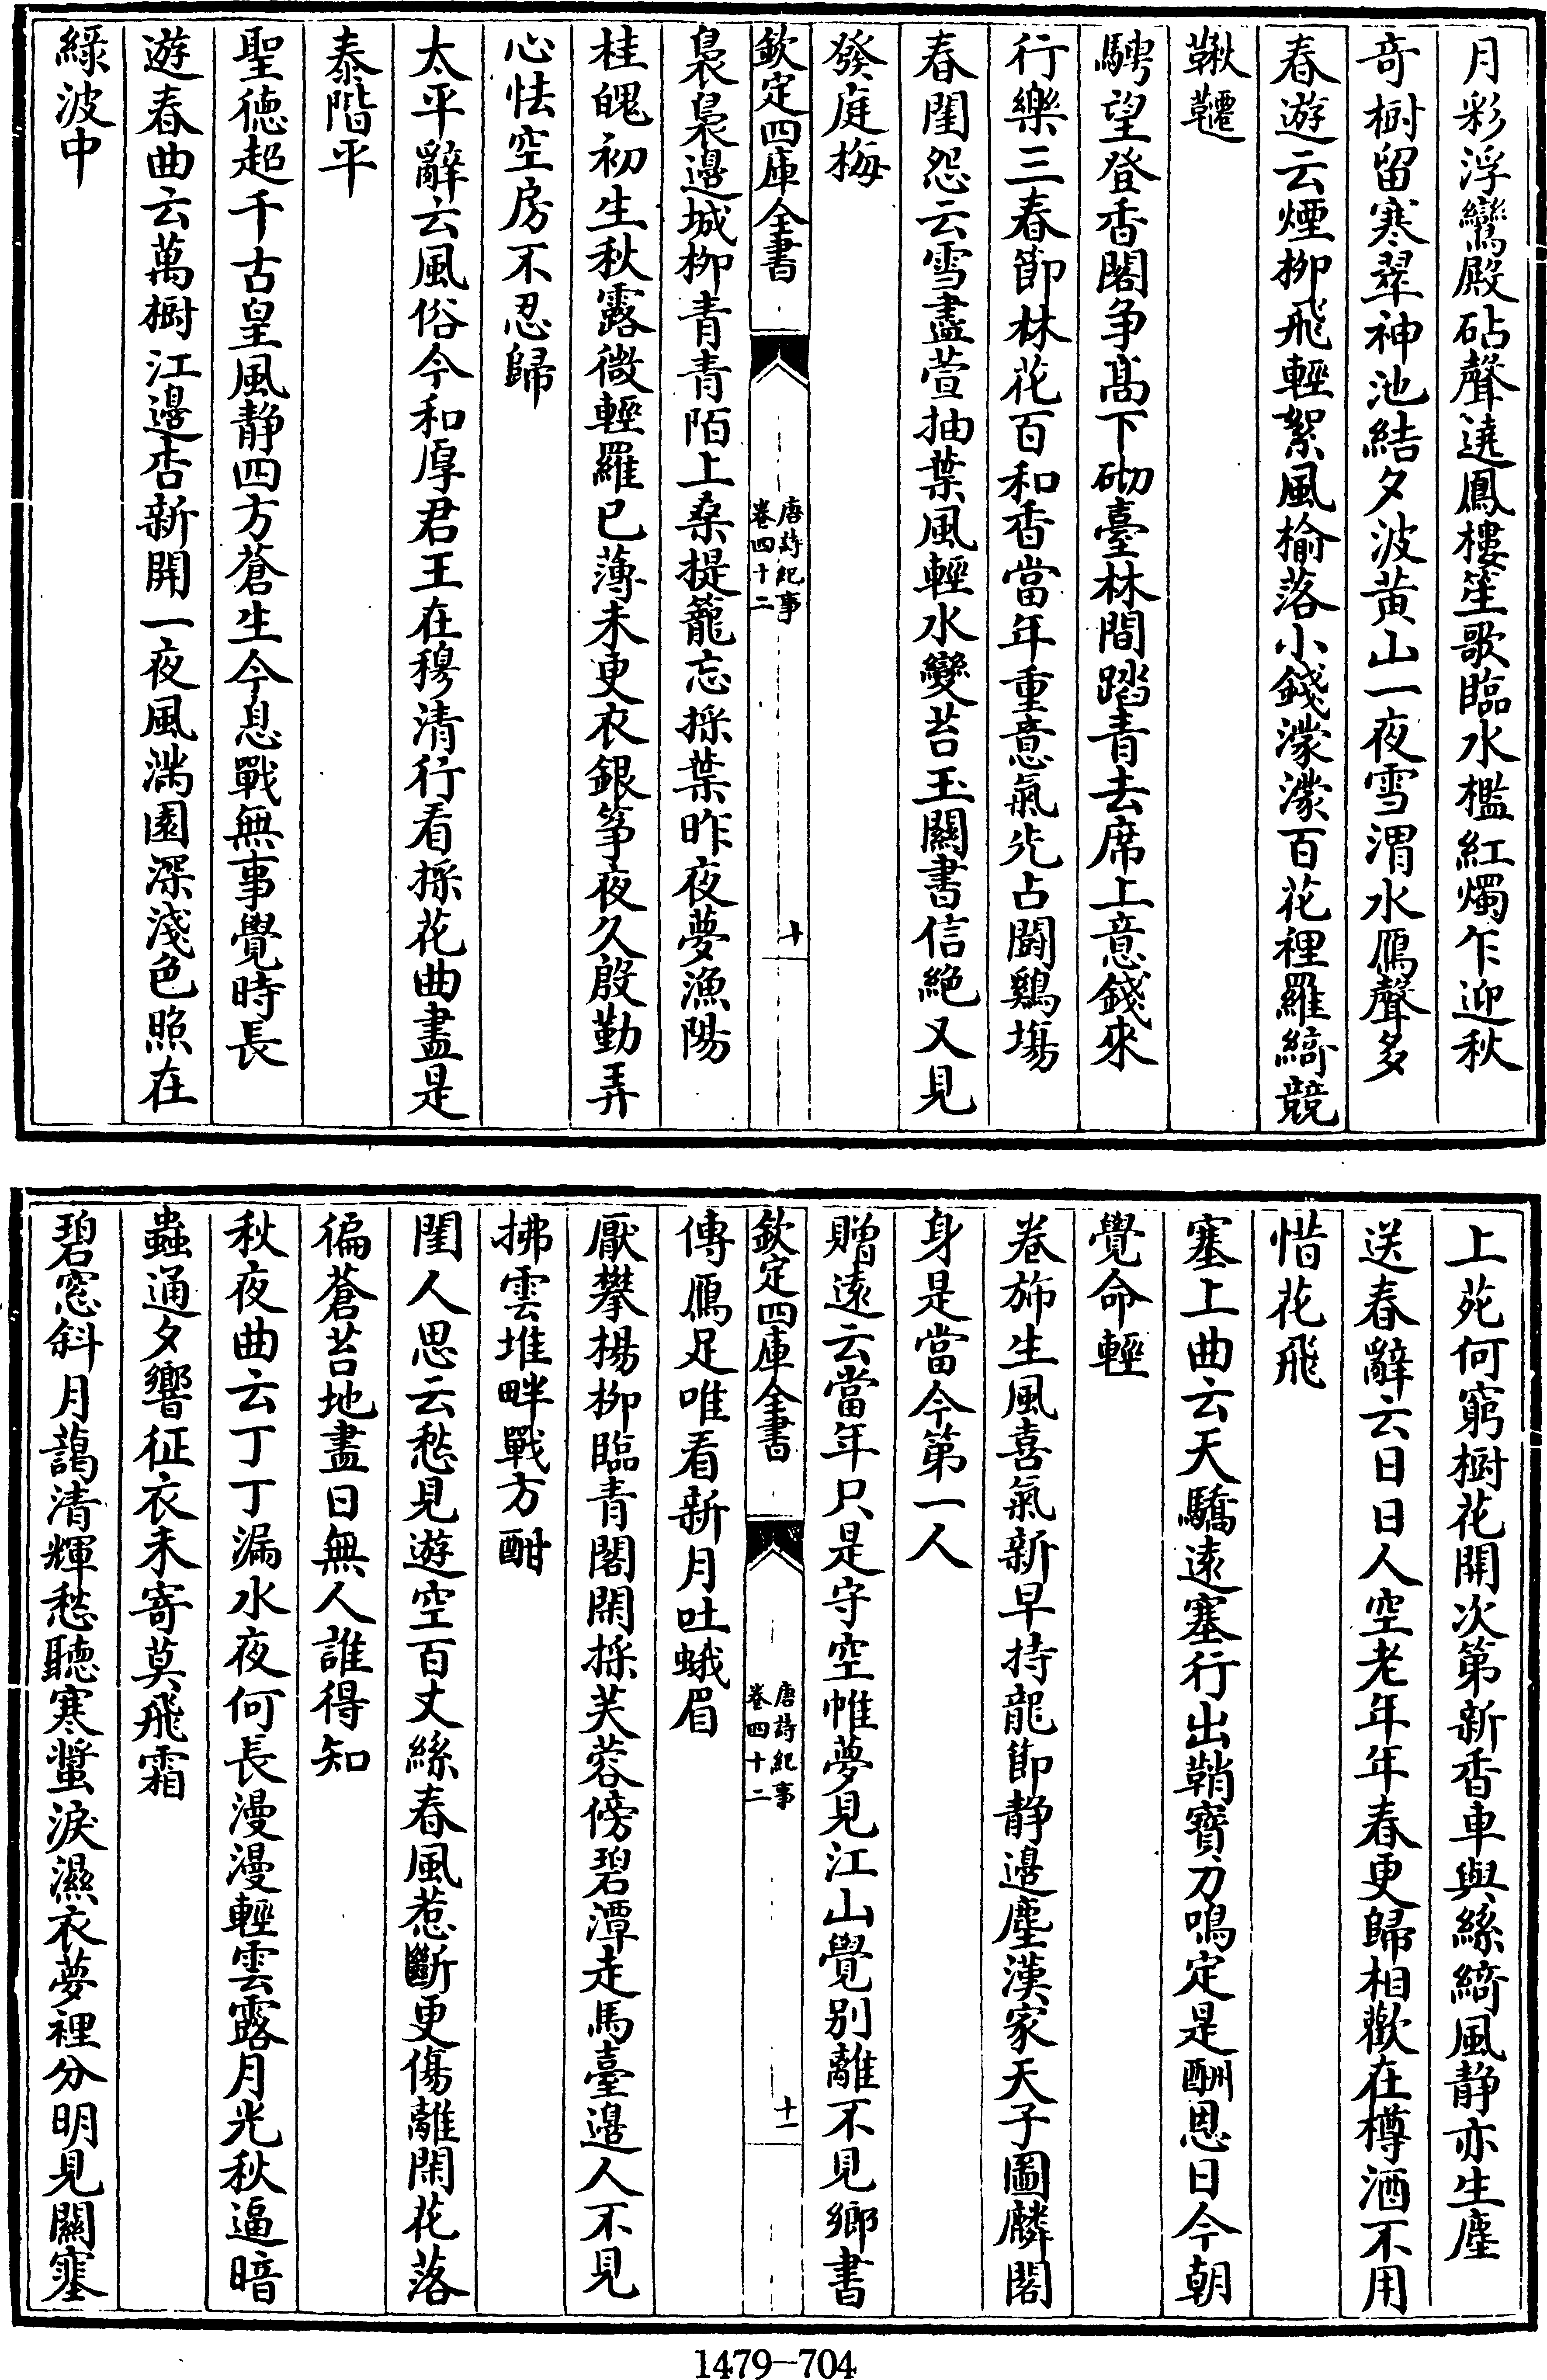 月彩浮鸞殿砧聲遶鳳樓笙歌臨水檻紅燭乍迎秋
奇樹留寒翠神池結夕波黄山一夜雪渭水鴈聲多
春遊云煙柳飛輕絮風榆落小錢濛濛百花裡羅綺競
鞦韆
騁望登香閣争髙下砌臺林間踏青去席上意錢來
行樂三春節林花百和香當年重意氣先占鬭鷄塲
春閨怨云雪盡萱抽葉風輕水變苔玉關書信絶又見
發庭梅
欽定四庫全書
唐詩紀事
卷四十二
十
裊裊邉城柳青青陌上桑提籠忘採葉昨夜夢漁陽
桂魄初生秋露微輕羅已薄未更衣銀筝夜久殷勤弄
心怯空房不忍歸
太平辭云風俗今和厚君王在穆清行看採花曲盡是
泰階平
聖德超千古皇風静四方蒼生今息戰無事覺時長
遊春曲云萬樹江邉杏新開一夜風滿園深淺色照在
綠波中
上苑何窮樹花開次第新香車與絲綺風静亦生塵
送春辭云日日人空老年年春更歸相歡在樽酒不用
惜花飛
塞上曲云天驕逺塞行出鞘寳刀鳴定是酬恩日今朝
覺命輕
卷斾生風喜氣新早持龍節静邉塵漢家天子圖麟閣
身是當今第一人
贈逺云當年只是守空帷夢見江山覺别離不見鄉書
欽定四庫全書
唐詩紀事
卷四十二
十一
傳鴈足唯看新月吐蛾眉
厭攀楊柳臨青閣閑採芙蓉傍碧潭走馬臺邉人不見
拂雲堆畔戰方酣
閨人思云愁見遊空百丈絲春風惹斷更傷離閑花落
徧蒼苔地盡日無人誰得知
秋夜曲云丁丁漏水夜何長漫漫輕雲露月光秋逼暗
蟲通夕響征衣未寄莫飛霜
碧窓斜月藹清輝愁聽寒螿淚濕衣夢裡分明見關塞
1479—704